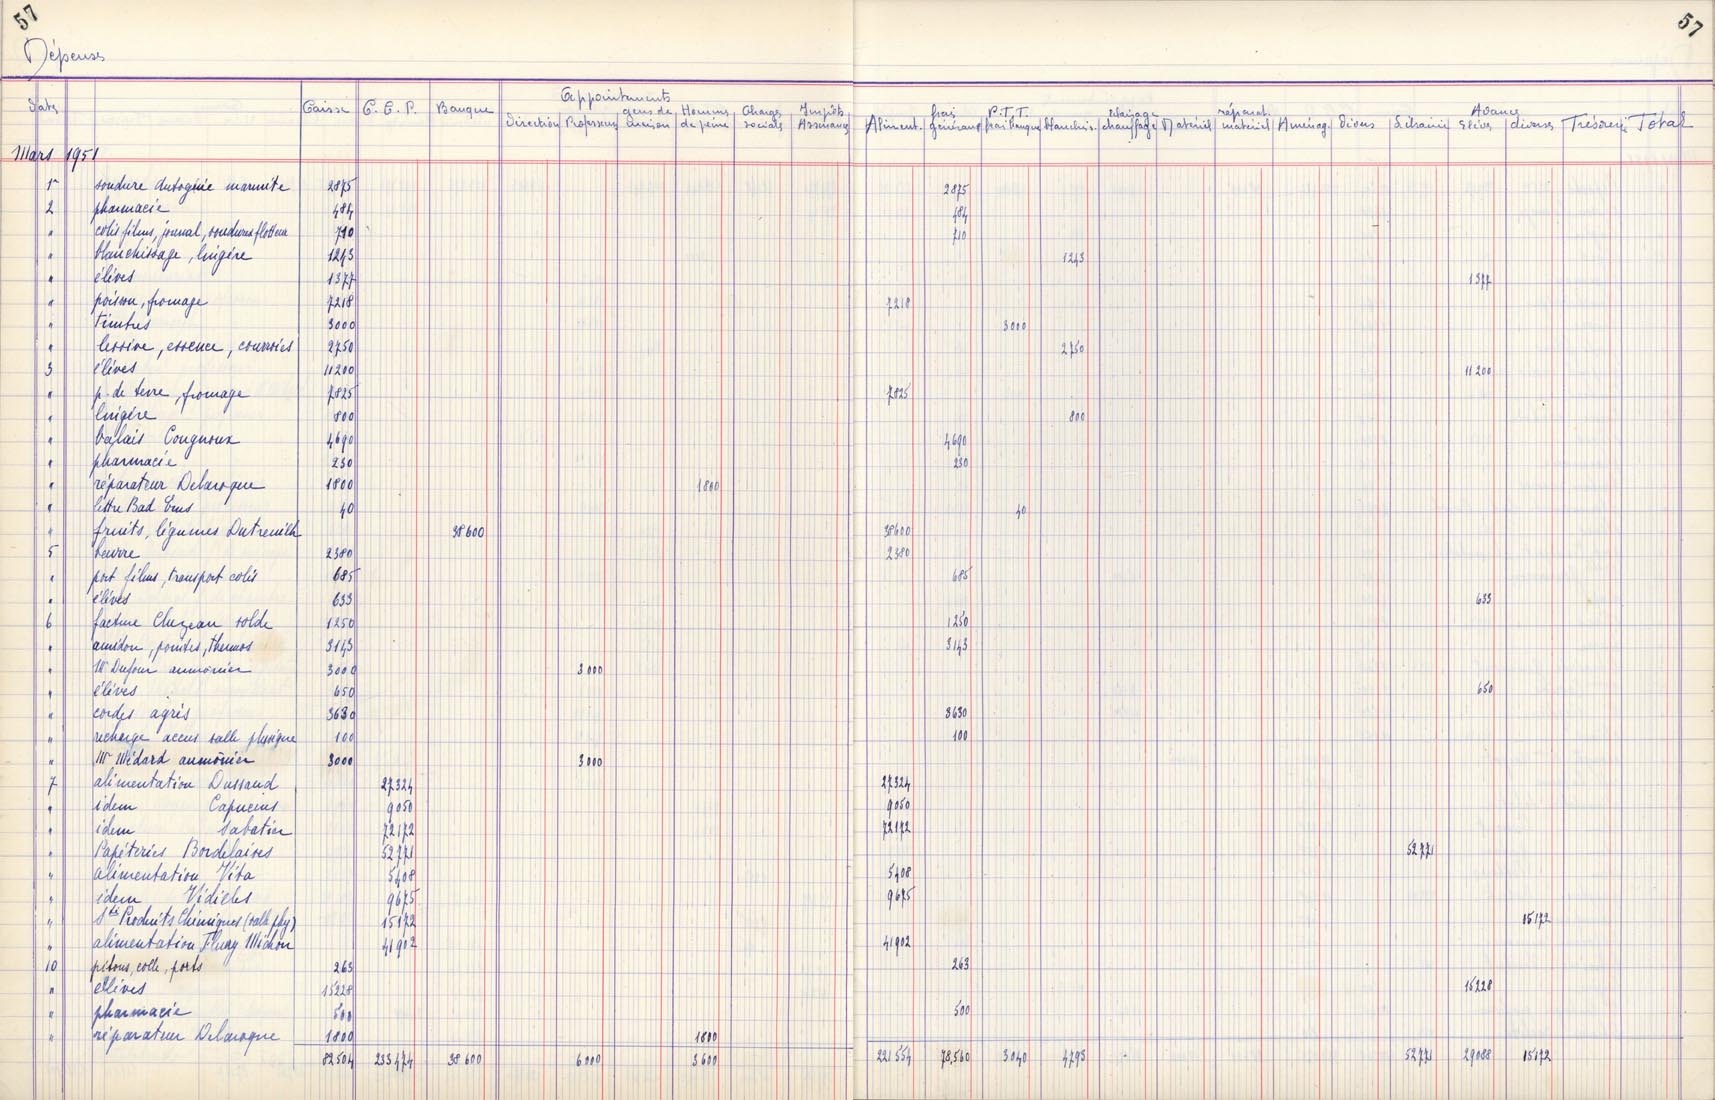 57
57
Dépenses
Appointements
Avance
Dates Caisse C.C.P. Banque Direction Professeurs gens de maison Hommes de peine Charges sociales Impôts Assurances Aliment. frais généraux P.T.T. frais banque blanchis. éclairage chauffage Matériel réparat. matériel Aménag. divers Librairie élèves diverses Trésorerie Total
Mars 1951
1er soudure autogène marmite 2875 2875
2 pharmacie 484 484
" colis films, journal, soudures flotteur 710 710
" blanchissage, lingère 1243 1243
" élèves 1377 1377
" poisson, fromage 7218 7218
" timbres 3000 3000
" lessive, essence, courroies 2750 2750
3 élèves 11200 11200
" p. de terre, fromage 7825 7825
" lingère 800 800
" balais Cougnoux 4690 4690
" pharmacie 230 230
" réparateur Delaroque 1800 1800
" lettre Bad Ems 40 40
" fruits, légumes Dutreuilh 38600 38600
5 beurre 2380 2380
" port films, transport colis 685 685
" élèves 633 633
6 facture Cluzeau solde 1250 1250
" amidon, pointes, thermos 3143 3143
" Mr Dufour aumônier 3000 3000
" élèves 650 650
" cordes agrès 3630 3630
" recharge accus salle physique 100 100
" Mr Médard aumônier 3000 3000
7 alimentation Dussaud 27324 27324
" idem Capucins 9050 9050
" idem Sabatier 72172 72172
" Papéteries Bordelaises 52771 52771
" alimentation Vita 5408 5408
" idem Vidielles 9675 9675
" Sté Produits Chimiques (salle phy) 15172 15172
" alimentation Fleury Michon 41902 41902
10 pitons, colle, ports 263 263
" élèves 15228 15228
" pharmacie 500 500
" réparateur Delaroque 1800 1800
82504 233474 38600 6000 3600 221554 78,560 3040 4793 - 52771 29088 15172